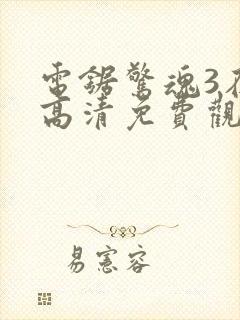 電鋸驚魂3
高清免費觀
易憲容